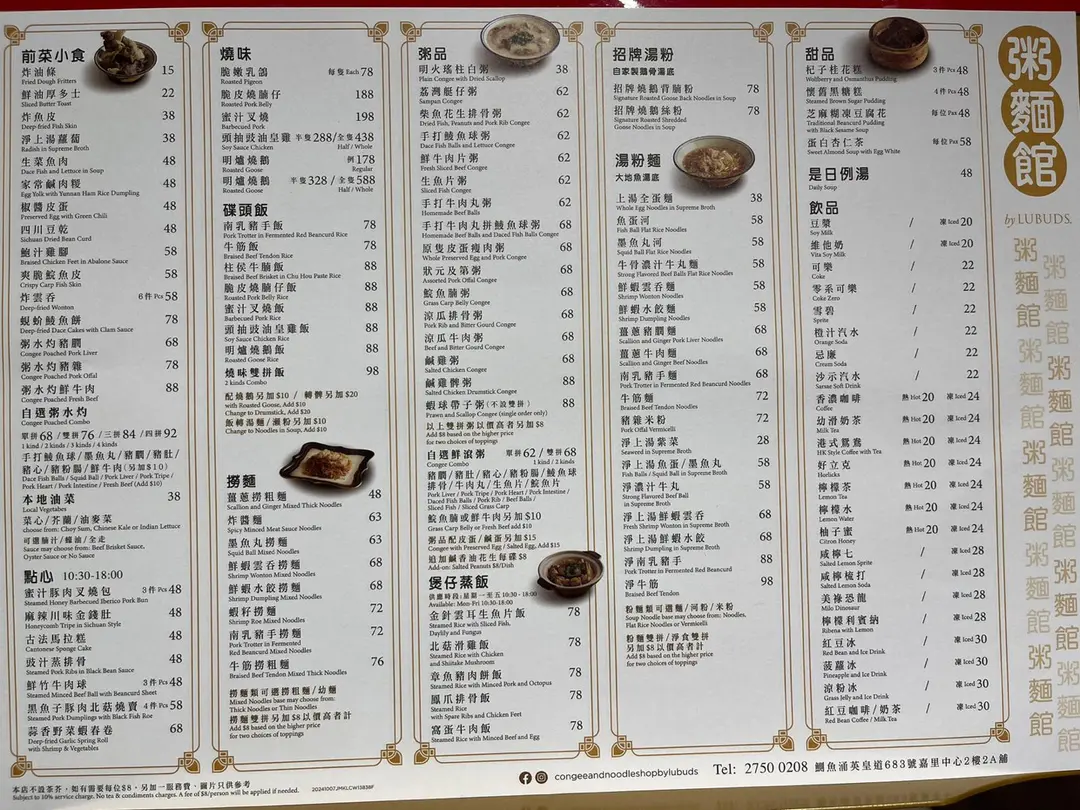 前菜小食
炸油條 15
Fried Dough Fritters
鮮油厚多士 22
Sliced Butter Toast
炸魚皮 38
Deep-fried Fish Skin
淨上湯蘿蔔 38
Radish in Supreme Broth
生菜魚肉 48
Dace Fish and Lettuce in Soup
家常鹹肉糉 48
Egg Yolk with Yunnan Ham Rice Dumpling
椒醬皮蛋 48
Preserved Egg with Green Chili
四川豆乾 48
Sichuan Dried Bean Curd
鮑汁雞腳 58
Braised Chicken Feet in Abalone Sauce
爽脆鯇魚皮 58
Crispy Carp Fish Skin
炸雲呑 6件 Pcs 58
Deep-fried Wonton
蜆蚧鯪魚餅 78
Deep-fried Dace Cakes with Clam Sauce
粥水灼豬膶 68
Congee Poached Pork Liver
粥水灼豬雜 78
Congee Poached Pork Offal
粥水灼鮮牛肉 88
Congee Poached Fresh Beef
自選粥水灼
Congee Poached Combo
單拼68 /雙拼76 /三拼84 /四拼92
1 kind / 2 kinds / 3 kinds / 4 kinds
手打鯪魚球/墨魚丸/豬膶/豬肚/
豬心/豬粉腸/鮮牛肉(另加$10)
Dace Fish Balls / Squid Ball / Pork Liver / Pork Tripe /
Pork Heart / Pork Intestine / Fresh Beef (Add $10)
本地油菜 38
Local Vegetables
菜心/芥蘭/油麥菜
choose from: Choy Sum, Chinese Kale or Indian Lettuce
可選腩汁/蠔油/全走
Sauce may choose from: Beef Brisket Sauce,
Oyster Sauce or No Sauce
點心 10:30-18:00
蜜汁豚肉叉燒包 3件 Pcs 48
Steamed Honey Barbecued Iberico Pork Bun
麻辣川味金錢肚 48
Honeycomb Tripe in Sichuan Style
古法馬拉糕 48
Cantonese Sponge Cake
豉汁蒸排骨 48
Steamed Pork Ribs in Black Bean Sauce
鮮竹牛肉球 3件 Pcs 48
Steamed Minced Beef Ball with Beancurd Sheet
黑魚子豚肉北菇燒賣 4件 Pcs 58
Steamed Pork Dumplings with Black Fish Roe
蒜香野菜蝦春卷 68
Deep-fried Garlic Spring Roll
with Shrimp & Vegetables
燒味
脆嫩乳鴿 每隻 Each 78
Roasted Pigeon
脆皮燒腩仔 188
Roasted Pork Belly
蜜汁叉燒 198
Barbecued Pork
頭抽豉油皇雞 半隻288/全隻438
Soy Sauce Chicken Half / Whole
明爐燒鵝 例178
Roasted Goose Regular
明爐燒鵝 半隻328 / 全隻588
Roasted Goose Half / Whole
碟頭飯
南乳豬手飯 78
Pork Trotter in Fermented Red Beancurd Rice
牛筋飯 78
Braised Beef Tendon Rice
柱侯牛腩飯 88
Braised Beef Brisket in Chu Hou Paste Rice
脆皮燒腩仔飯 88
Roasted Pork Belly Rice
蜜汁叉燒飯 88
Barbecued Pork Rice
頭抽豉油皇雞飯 88
Soy Sauce Chicken Rice
明爐燒鵝飯 88
Roasted Goose Rice
燒味雙拼飯 98
2 kinds Combo
配燒鵝另加$10 / 轉髀另加$20
with Roasted Goose, Add $10
Change to Drumstick, Add $20
飯轉湯麵/瀨粉另加$10
Change to Noodles in Soup, Add $10
撈麵
薑蔥撈粗麵 48
Scallion and Ginger Mixed Thick Noodles
炸醬麵 63
Spicy Minced Meat Sauce Noodles
墨魚丸撈麵 63
Squid Ball Mixed Noodles
鮮蝦雲呑撈麵 68
Shrimp Wonton Mixed Noodles
鮮蝦水餃撈麵 68
Shrimp Dumpling Mixed Noodles
蝦籽撈麵 72
Shrimp Roe Mixed Noodles
南乳豬手撈麵 72
Pork Trotter in Fermented
Red Beancurd Mixed Noodles
牛筋撈粗麵 76
Braised Beef Tendon Mixed Thick Noodles
撈麵類可選粗麵/幼麵
Mixed Noodles base may choose from:
Thick Noodles or Thin Noodles
撈麵雙拼另加$8以價高者計
Add $8 based on the higher price
for two choices of toppings
粥品
明火瑤柱白粥 38
Plain Congee with Dried Scallop
荔灣艇仔粥 62
Sampan Congee
柴魚花生排骨粥 62
Dried Fish, Peanuts and Pork Rib Congee
手打鯪魚球粥 62
Dace Fish Balls and Lettuce Congee
鮮牛肉片粥 62
Fresh Sliced Beef Congee
生魚片粥 62
Sliced Fish Congee
手打牛肉丸粥 62
Homemade Beef Balls
手打牛肉丸拼鯪魚球粥 68
Homemade Beef Balls and Daced Fish Balls Congee
原隻皮蛋瘦肉粥 68
Whole Preserved Egg and Pork Congee
狀元及第粥 68
Assorted Pork Offal Congee
鯇魚腩粥 68
Grass Carp Belly Congee
涼瓜排骨粥 68
Pork Rib and Bitter Gourd Congee
涼瓜牛肉粥 68
Beef and Bitter Gourd Congee
鹹雞粥 68
Salted Chicken Congee
鹹雞髀粥 88
Salted Chicken Drumstick Congee
蝦球帶子粥(不設雙拼) 88
Prawn and Scallop Congee (single order only)
以上雙拼粥以價高者另加$8
Add $8 based on the higher price
for two choices of toppings
自選鮮滾粥 單拼62 / 雙拼68
Congee Combo 1 kind / 2 kinds
豬膶/豬肚/豬心/豬粉腸/鯪魚球
排骨/牛肉丸/生魚片/鯇魚片
Pork Liver / Pork Tripe / Pork Heart / Pork Intestine /
Daced Fish Balls / Pork Rib / Beef Balls /
Sliced Fish / Sliced Grass Carp
鯇魚腩或鮮牛肉另加$10
Grass Carp Belly or Fresh Beef add $10
粥品配皮蛋/鹹蛋另加$15
Congee with Preserved Egg / Salted Egg, Add $15
追加鹹香油花生每碟$8
Add-on: Salted Peanuts $8/Dish
煲仔蒸飯
供應時段: 星期一至五 10:30 - 18:00
Available: Mon-Fri 10:30-18:00
金針雲耳生魚片飯 78
Steamed Rice with Sliced Fish,
Daylily and Fungus
北菇滑雞飯 78
Steamed Rice with Chicken
and Shiitake Mushroom
章魚豬肉餅飯 78
Steamed Rice with Minced Pork and Octopus
鳳爪排骨飯 78
Steamed Rice
with Spare Ribs and Chicken Feet
窩蛋牛肉飯 78
Steamed Rice with Minced Beef and Egg
招牌湯粉
自家製鵝骨湯底
招牌燒鵝背腩粉 78
Signature Roasted Goose Back Noodles in Soup
招牌燒鵝絲粉 78
Signature Roasted Shredded
Goose Noodles in Soup
湯粉麵
大地魚湯底
上湯全蛋麵 38
Whole Egg Noodles in Supreme Broth
魚蛋河 58
Fish Ball Flat Rice Noodles
墨魚丸河 58
Squid Ball Flat Rice Noodles
牛骨濃汁牛丸麵 58
Strong Flavored Beef Balls Flat Rice Noodles
鮮蝦雲吞麵 58
Shrimp Wonton Noodles
鮮蝦水餃麵 58
Shrimp Dumpling Noodles
薑蔥豬膶麵 68
Scallion and Ginger Pork Liver Noodles
薑蔥牛肉麵 68
Scallion and Ginger Beef Noodles
南乳豬手麵 68
Pork Trotter in Fermented Red Beancurd Noodles
牛筋麵 72
Braised Beef Tendon Noodles
豬雜麵 72
Pork Offal Vermicelli
淨上湯紫菜 28
Seaweed in Supreme Broth
淨上湯魚蛋/墨魚丸 58
Fish Balls / Squid Ball in Supreme Broth
淨濃汁牛丸 58
Strong Flavored Beef Ball
in Supreme Broth
淨上湯鮮蝦雲呑 68
Fresh Shrimp Wonton in Supreme Broth
淨上湯鮮蝦水餃 68
Shrimp Dumpling in Supreme Broth
淨南乳豬手 88
Pork Trotter in Fermented Red Beancurd
淨牛筋 98
Braised Beef Tendon
粉麵類可選麵/河粉/米粉
Soup Noodle base may choose from: Noodles,
Flat Rice Noodles or Vermicelli
粉麵雙拼/淨食雙拼
另加$8以價高者計
Add $8 based on the higher price
for two choices of toppings
甜品
杞子桂花糕 3件 Pcs 48
Wolfberry and Osmanthus Pudding
懷舊黑糖糕 4件 Pcs 48
Steamed Brown Sugar Pudding
芝麻糊凍豆腐花 每位 Pax 48
Traditional Beancurd Pudding
with Black Sesame Soup
蛋白杏仁茶 每位 Pax 58
Sweet Almond Soup with Egg White
是日例湯 48
Daily Soup
飲品
豆漿 / 凍 Iced 20
Soy Milk
維他奶 / 凍 Iced 20
Vita Soy Milk
可樂 / 22
Coke
零系可樂 / 22
Coke Zero
雪碧 / 22
Sprite
橙汁汽水 / 22
Orange Soda
忌廉 / 22
Cream Soda
沙示汽水 / 22
Sarsae Soft Drink
香濃咖啡 熱 Hot 20 凍 Iced 24
Coffee
幼滑奶茶 熱 Hot 20 凍 Iced 24
Milk Tea
港式鴛鴦 熱 Hot 20 凍 Iced 24
HK Style Coffee with Tea
好立克 熱 Hot 20 凍 Iced 24
Horlicks
檸檬茶 熱 Hot 20 凍 Iced 24
Lemon Tea
檸檬水 熱 Hot 20 凍 Iced 24
Lemon Water
柚子蜜 熱 Hot 20 凍 Iced 24
Citron Honey
咸檸七 / 凍 Iced 28
Salted Lemon Sprite
咸檸梳打 / 凍 Iced 28
Salted Lemon Soda
美祿恐龍 / 凍 Iced 28
Milo Dinosaur
檸檬利賓納 / 凍 Iced 28
Ribena with Lemon
紅豆冰 / 凍 Iced 30
Red Bean and Ice Drink
菠蘿冰 / 凍 Iced 30
Pineapple and Ice Drink
涼粉冰 / 凍 Iced 30
Grass Jelly and Ice Drink
紅豆咖啡/奶茶 / 凍 Iced 30
Red Bean Coffee / Milk Tea
粥麵館
by LUBUDS.
粥麵館粥麵館粥麵館粥麵館
粥麵館粥麵館粥麵館粥麵館
本店不設茶芥,如有需要每位$8,另加一服務費,圖片只供參考
Subject to 10% service charge. No tea & condiments charges. A fee of $8/person will be applied if needed.
20241007JMKLCW13838F
congeeandnoodleshopbylubuds
Tel: 2750 0208 鰂魚涌英皇道683號嘉里中心2樓2A舖